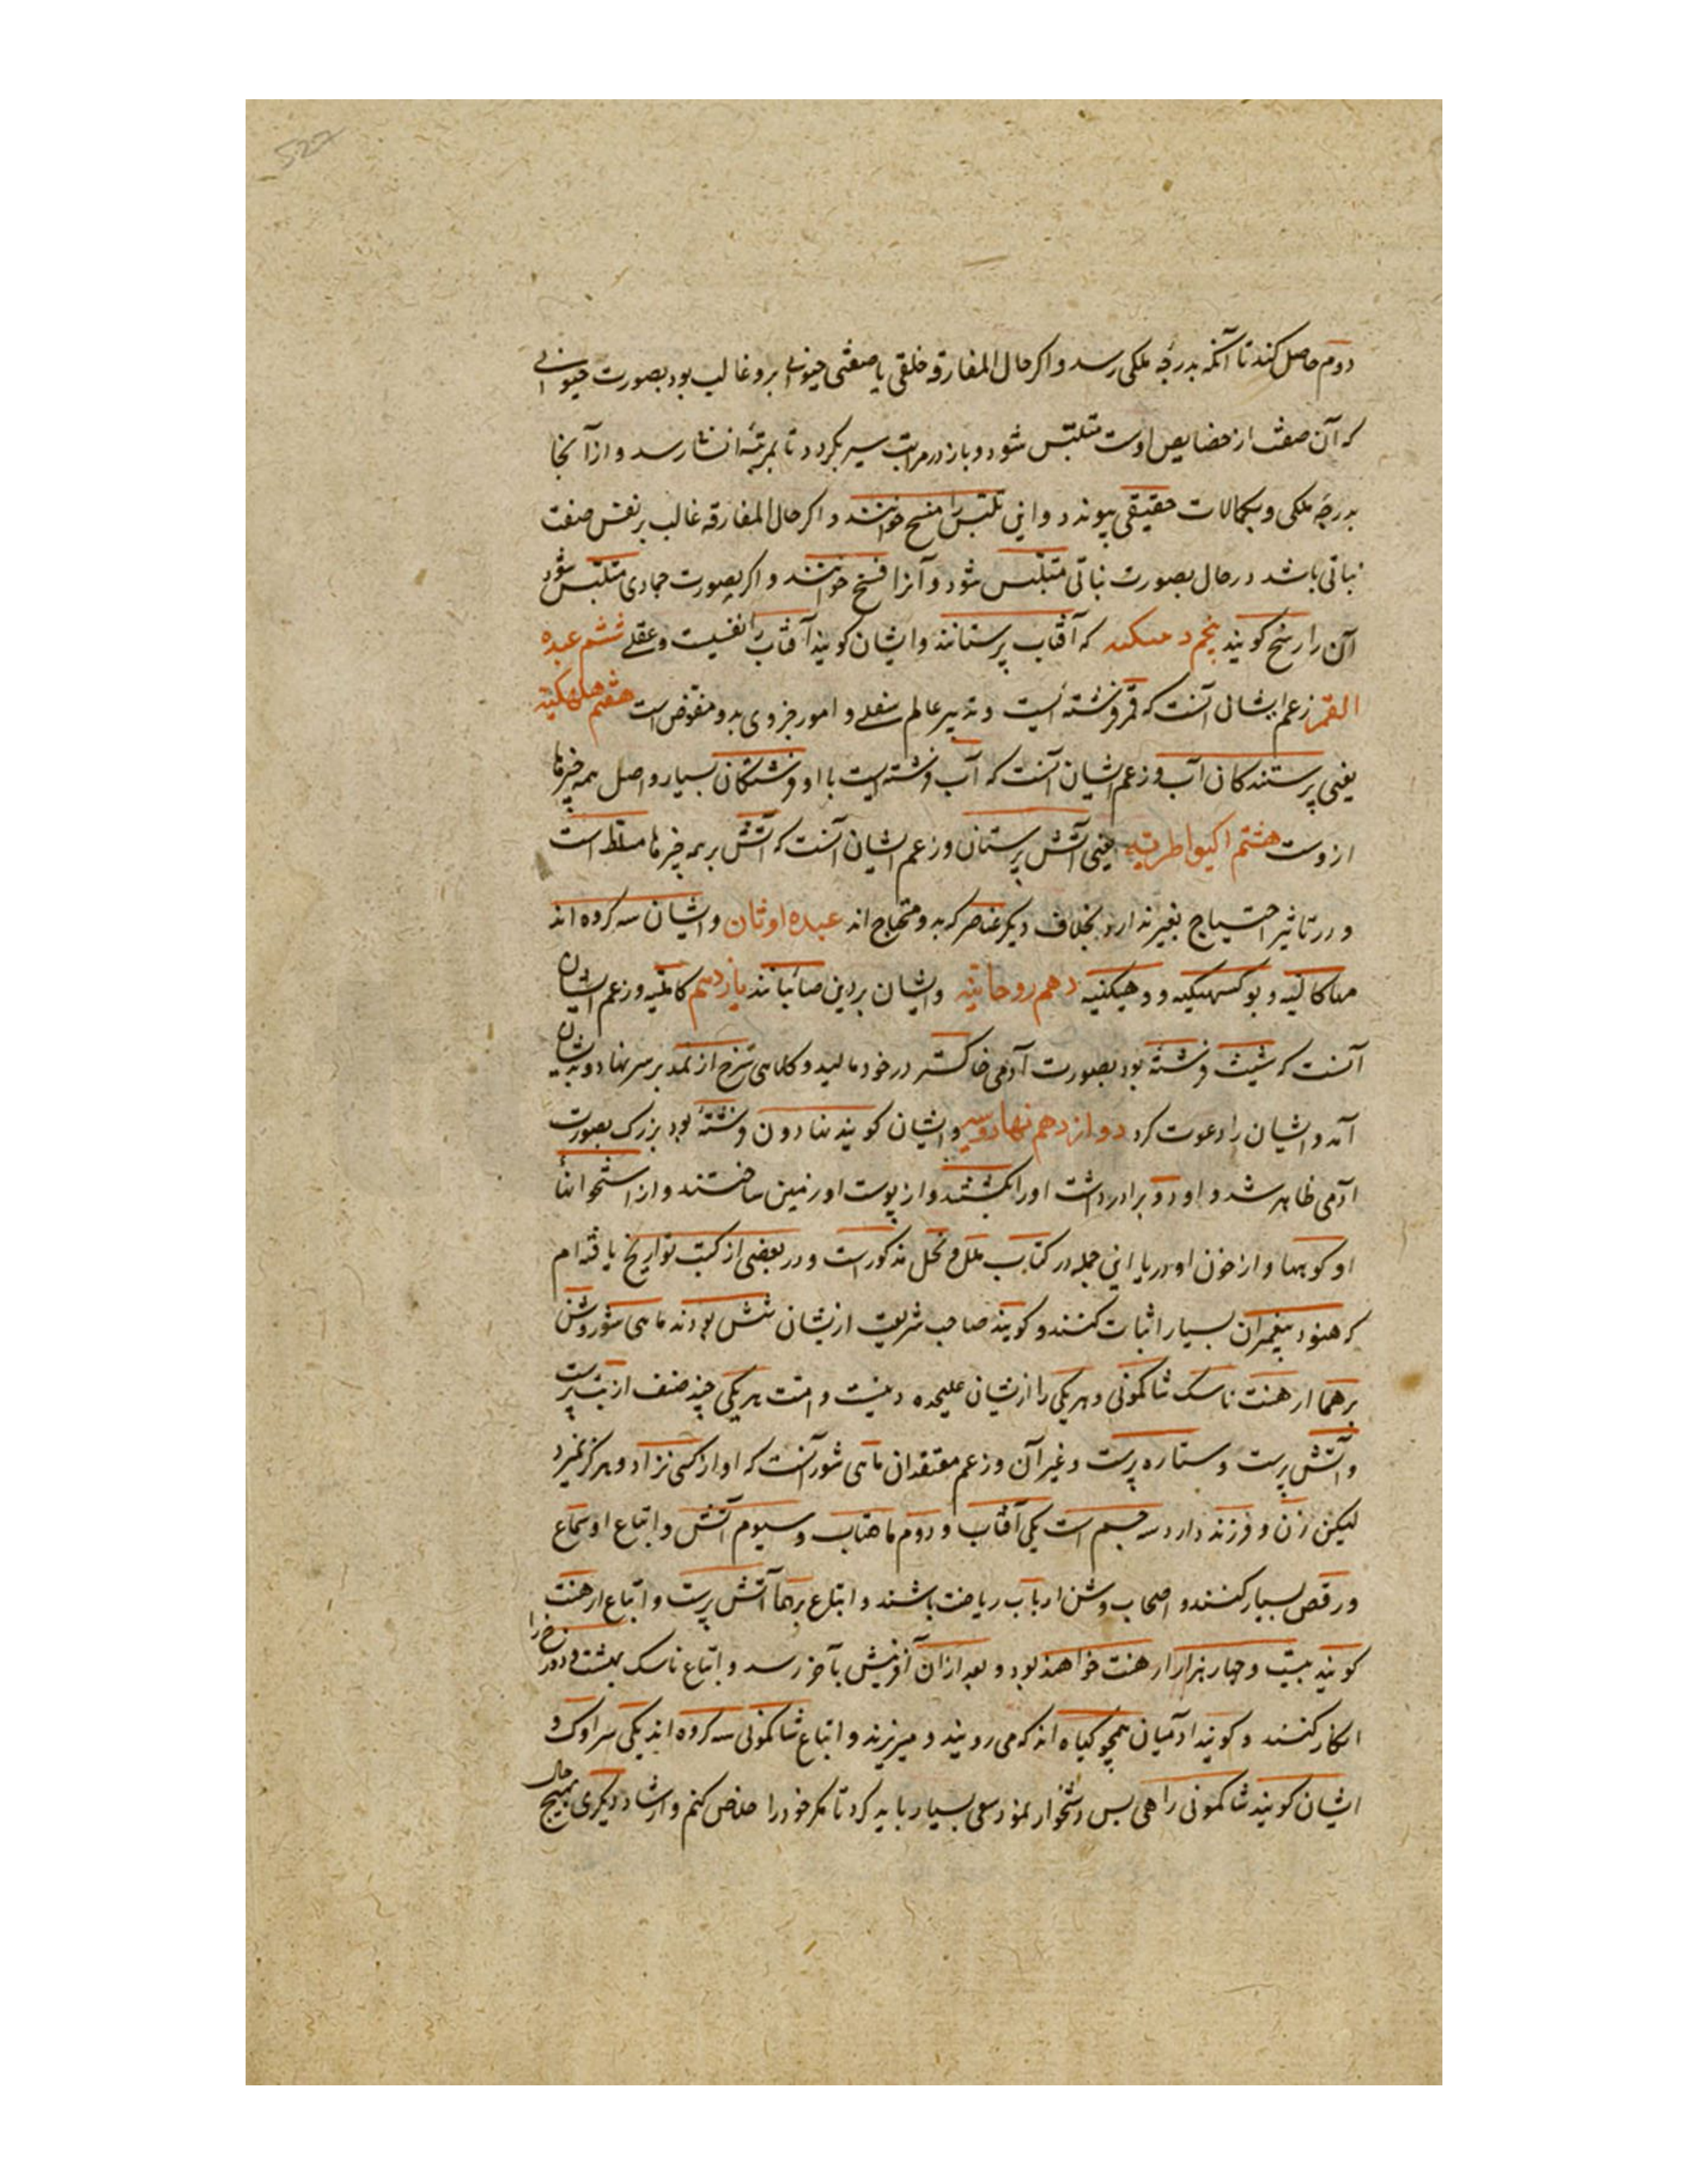 522
دوم حاصل کند تا آنکه بدرجه ملکی رسد و اگر حال المفارقه خلقی یا صفتی حیوانی برو غالب بود بصورت حیوانی
که آن صفت از خصایص اوست متلبس شود و باز در مراتب سیر بگردد تا بمرتبه انشا رسد و از آنجا
بدرجه ملکی و بکمالات حقیقی پیوندد و این تلبس را مسخ خوانند و اگر حال المفارقه غالب بر نفس صفت
نباتی باشد در حال بصورت نباتی متلبس شود و آنرا فسخ خوانند و اگر بصورت جمادی متلبس شود
آن را رسخ گویند پنجم که آفتاب پرستانند و ایشان گویند آفتاب را نفسیت و عقلی ششم عبده
القمر زعم ایشان آنست که قمر فرشته ایست و تدبیر عالم سفلی و امور جزوی بدو مفوض است هفتم
یعنی پرستندکان آب و زعم ایشان آنست که آب فرشته ایست با او فرشتکان بسیار و اصل همه چیزها
ازوست هشتم اکنواطریه یعنی آتش پرستان و زعم ایشان آنست که آتش بر همه چیزها مسلط است
و در تاثیر احتیاج بغیر ندارد بخلاف دیگر عناصر که بدو محتاج اند عبده اوثان و ایشان سه کروه اند
مهاکالیه و بوکسهیکیه و دهیکنیه دهم روحانیه و ایشان بر دین صائبانند یازدهم کابلیه و زعم ایشان
آنست که شیث فرشته بود بصورت آدمی خاکستر در خود مالید و کلاهی سرخ از نمد بر سر نهاد و بدیشان
آمد و ایشان را دعوت کرد دوازدهم نهادونیه و ایشان گویند نهادون فرشته بود بزرک بصورت
آدمی ظاهر شد و او دو برادر داشت او را بکشتند و از پوست او زمین ساختند و از استخوانها
او کوهها و از خون او دریا این جمله در کتاب ملل و نحل مذکورست و در بعضی از کتب تواریخ یافته ام
که هنود پیغمبران بسیار اثبات کنند و گویند صاحب شریعت ازیشان شش بودند ماهی شور و شن
برهما ارهنت ناسک شاکمونی و هریکی را ازیشان علیحده دینیست و امت هریکی چند صنف از بت پرست
و آتش پرست و ستاره پرست و غیر آن و زعم معتقدان ماهی شور آنست که او از کسی نزاد و هرگز نمیرد
لیکن زن و فرزند دارد سه جسم است یکی آفتاب و دوم ماهتاب و سیوم آتش و اتباع او سماع
و رقص بسیار کنند و اصحاب وشن ارباب ریاضت باشند و اتباع برهما آتش پرست و اتباع ارهنت
گویند بیست و چهار هزار ارهنت خواهند بود و بعد ازان آفرینش بآخر رسد و اتباع ناسک بهشت و دوزخ را
انکار کنند و گویند آدمیان همچو گیاه اند که می رویند و میریزند و اتباع شاکمونی سه کروه اند یکی سراوک و
ایشان گویند شاکمونی راهی بس دشخوار نمود سعی بسیار باید کرد تا مگر خود را خلاص کنم و ارشاد دیگری بهیچ حال